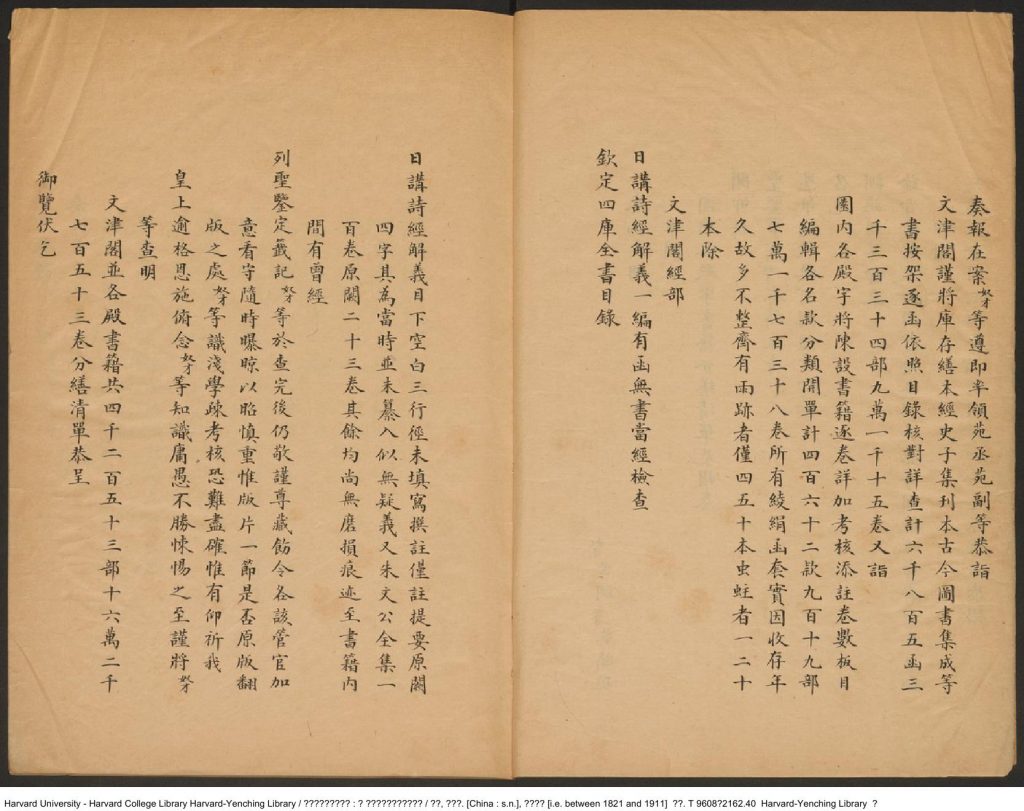 奏報在案奴才等遵即率領苑丞苑副等恭詣
文津閣謹將庫存繕本經史子集刊本古今圖書集成等
書按架逐函依照目錄核對詳查計六千八百五函三
千三百三十四部九萬一千十五卷又詣
園內各殿宇將陳設書籍逐卷詳加考核添註卷數板目
編輯各名款分類開單計四百六十二款九百十九部
七萬一千七百三十八卷所有綾絹函套實因收存年
久故多不整齊有雨跡者僅四五十本虫蛀者一二十
本除
文津閣經部
日講詩經解義一編有函無書當經檢查
欽定四庫全書目錄
日講詩經解義目下空白三行徑未填寫撰註僅註提要原闕
四字其為當時並未纂入似無疑義又朱文公全集一
百卷原闕二十三卷其餘均尚無磨損痕迹至書籍內
間有曾經
列聖鑒定籤記奴才等於查完後仍敬謹尊藏飭令各該管官加
意看守隨時曝晾以昭慎重惟版片一節是否原版翻
版之處奴才等識淺學疎考核恐難盡確惟有仰祈我
皇上逾格恩施俯念奴才等知識庸愚不勝悚惕之至謹將奴才
等查明
文津閣並各殿書籍共四千二百五十三部十六萬二千
七百五十三卷分繕清單恭呈
御覽伏乞
Harvard University - Harvard College Library Harvard-Yenching Library / ????????? : ? ??????????? / ??, ???. [China : s.n.], ???? [i.e. between 1821 and 1911] ??. T 9608?2162.40 Harvard-Yenching Library ?